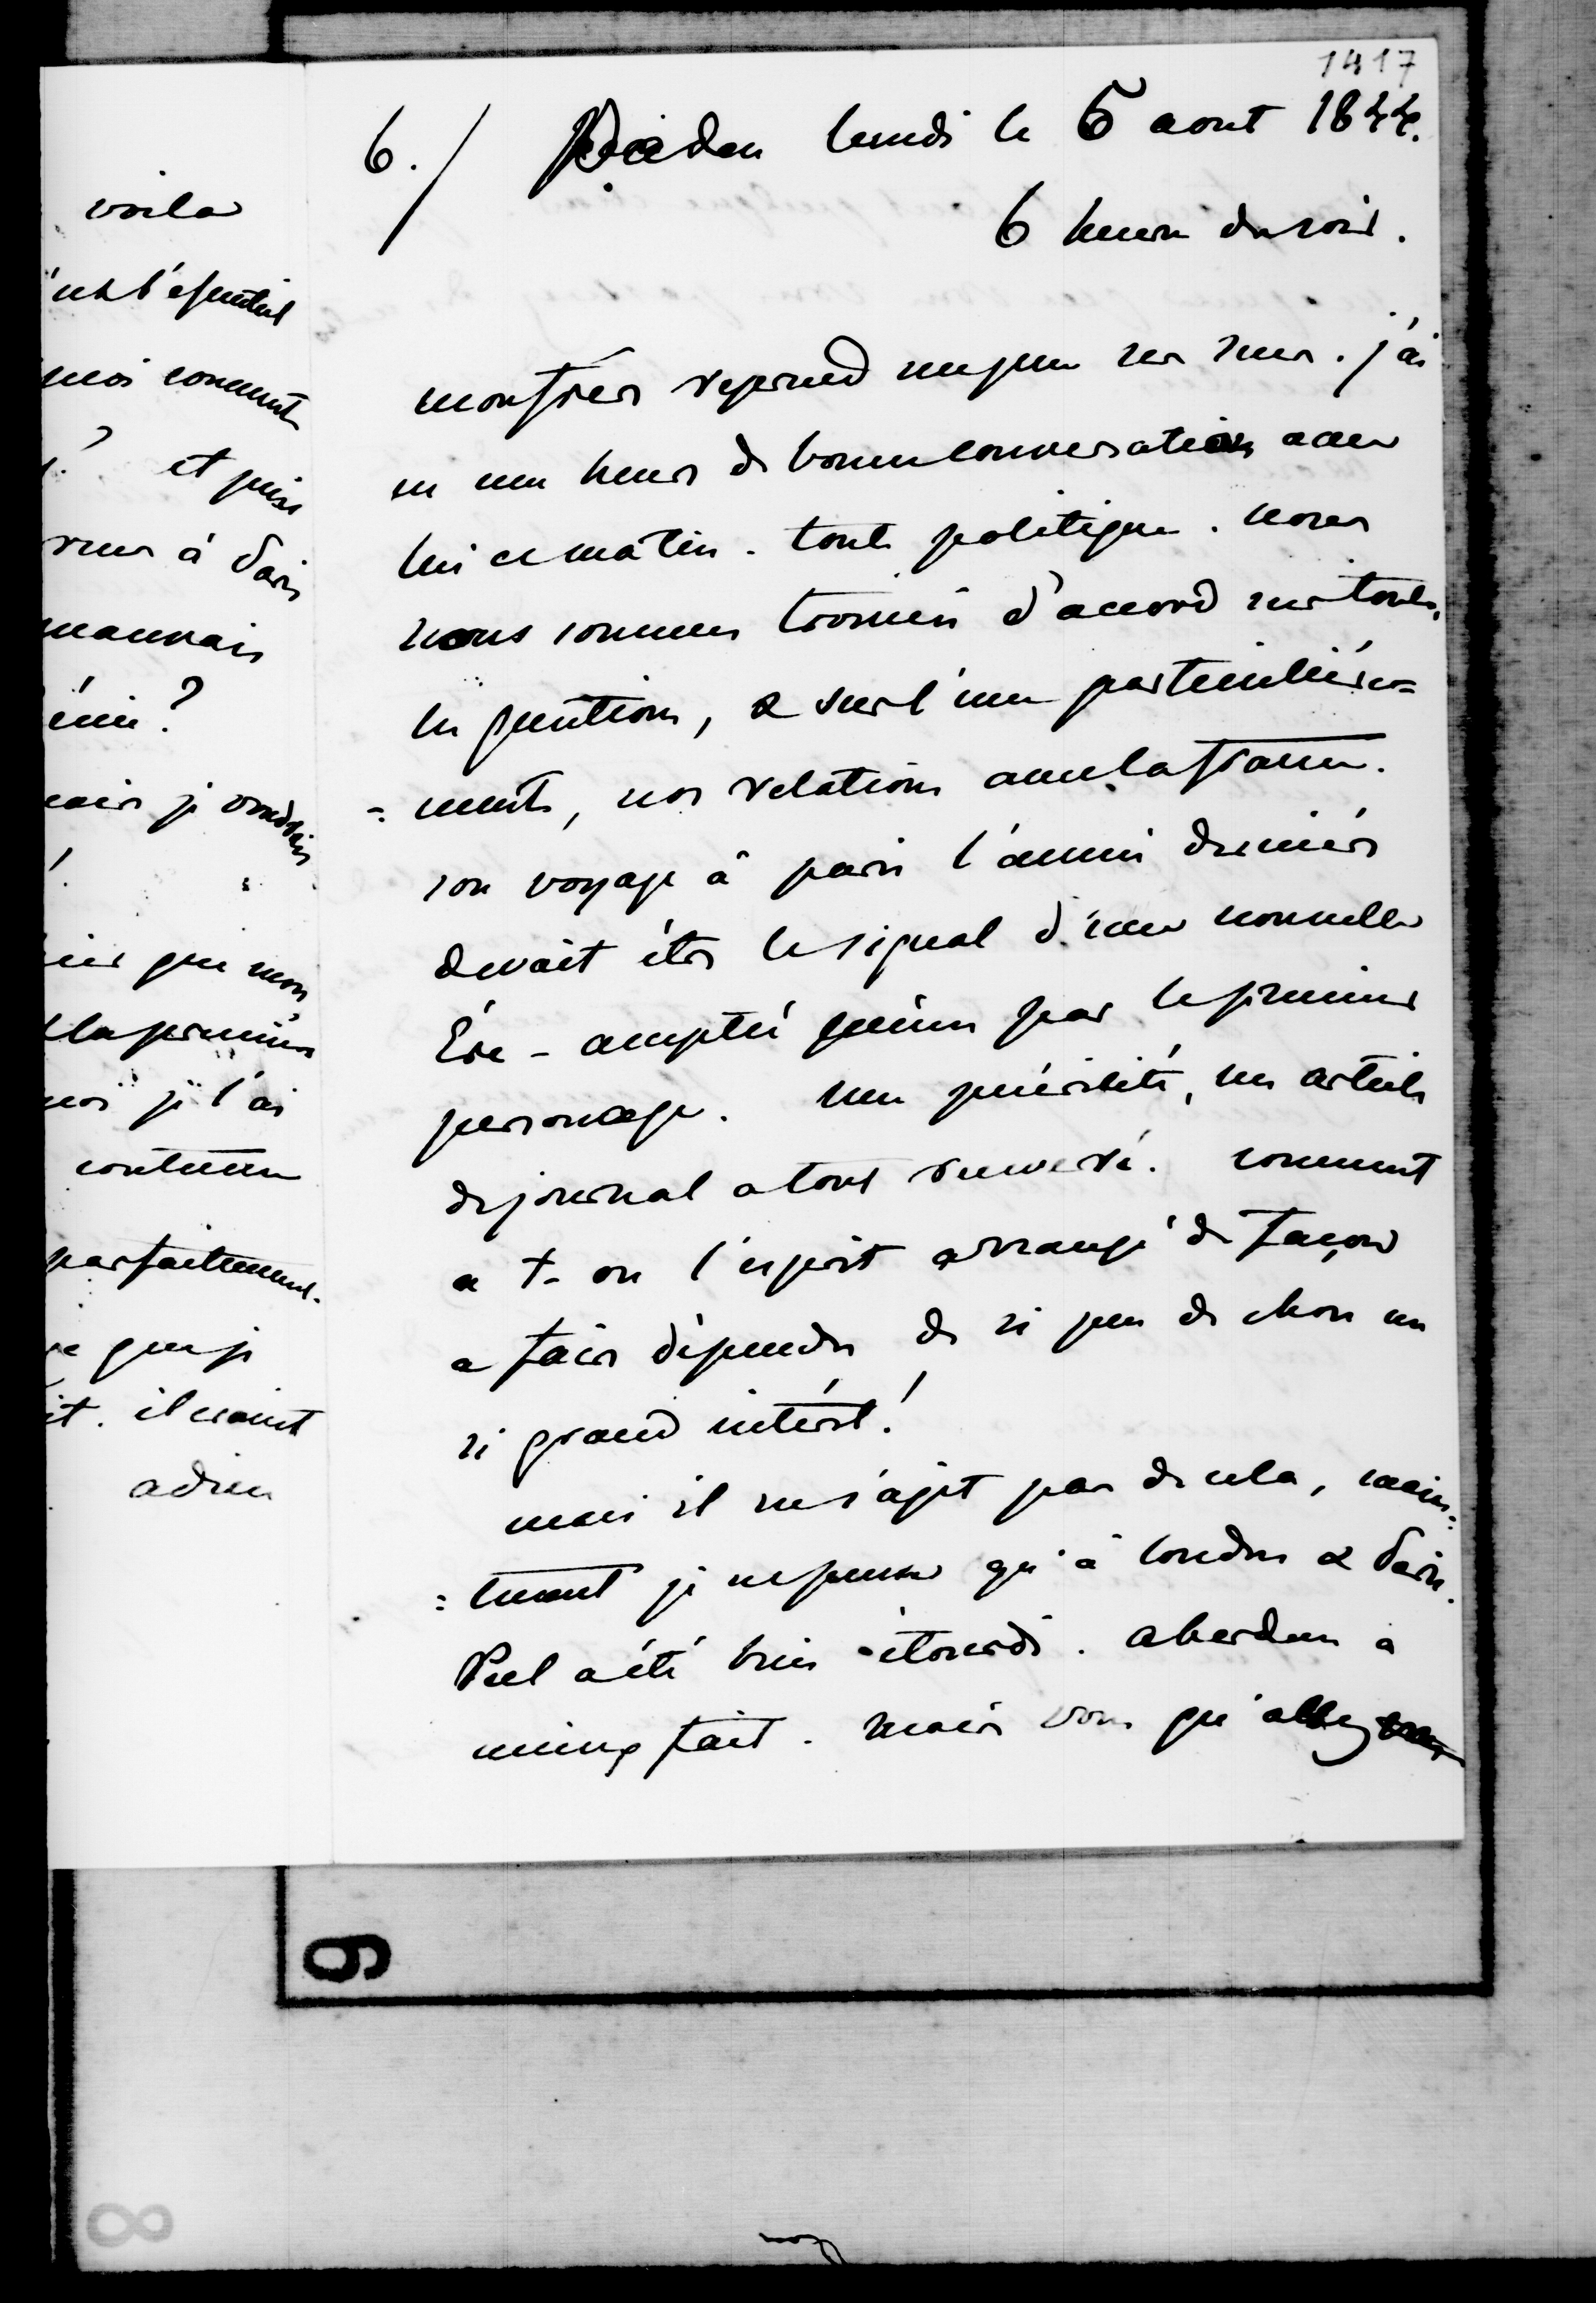 voila
l'essentiel
moi comment
et puis
à Paris
mauvais
je voudrais
que mon
la premiere
je l'ai
contenu
parfaitement.
que je
il craint
adieu
1417
6./ Baden lundi le 5 aout 1844.
6 heures du soir.
mon frère reprend un peu ses sens. j'ai
eu une heure de bonne conversation avec
lui ce matin. toute politique. nous
nous sommes trouvés d'accord sur toutes
les questions, & sur l'une particulière=
=ment, nos relations avec la france.
son voyage à paris l'année dernière
devait être le signal d'une nouvelle
Ere - acceptée même par le premier
personage. une puérilité, un article
de journal a tout renversé. comment
a t-on l'esprit arrangé de façon
a faire dépendre de si peu de chose un
si grand intérêt!
mais il ne s'agit pas de cela, main=
=tenant je ne pense qu'à londres & Paris.
Peel a été bien étourdi. aberdeen a
mieux fait. mais vous qu'allez
9
8